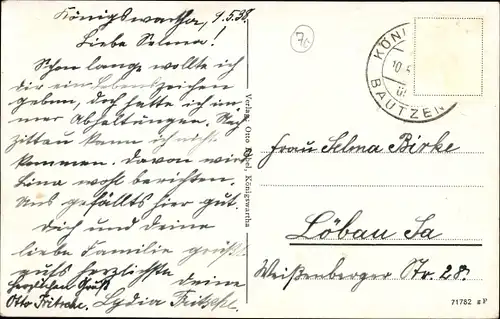 Königswartha, 9.5.38.
Liebe Selma!
Schon lange wollte ich
dir ein Lebenszeichen
geben, doch hatte ich im-
mer Abhaltungen. Nach
Zittau kann ich nicht
kommen. davon wird
Lina wohl berichten.
Uns gefällts hier gut.
Dich und deine
liebe Familie grüßt
aufs herzlichste deine
Lydia Fritsche.
Herzlichen Gruß
Otto Fritsche.
Verlag: Otto Nebel, Königswartha
70
BAUTZEN
Frau Selma Birke
Löbau Sa
Weißenberger Str. 28.
71782